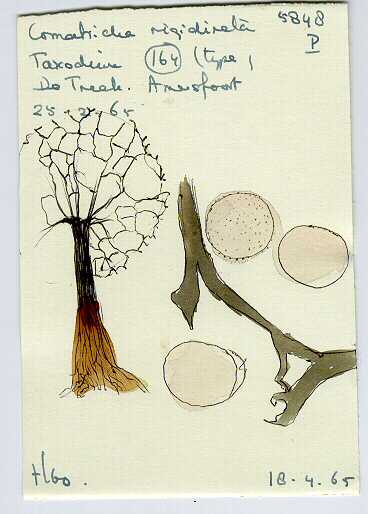 Comatricha rigidireta 5848
Taxodium 164 (type) P
De Treek. Amersfoort
25-2-65
H60. 18.4.65